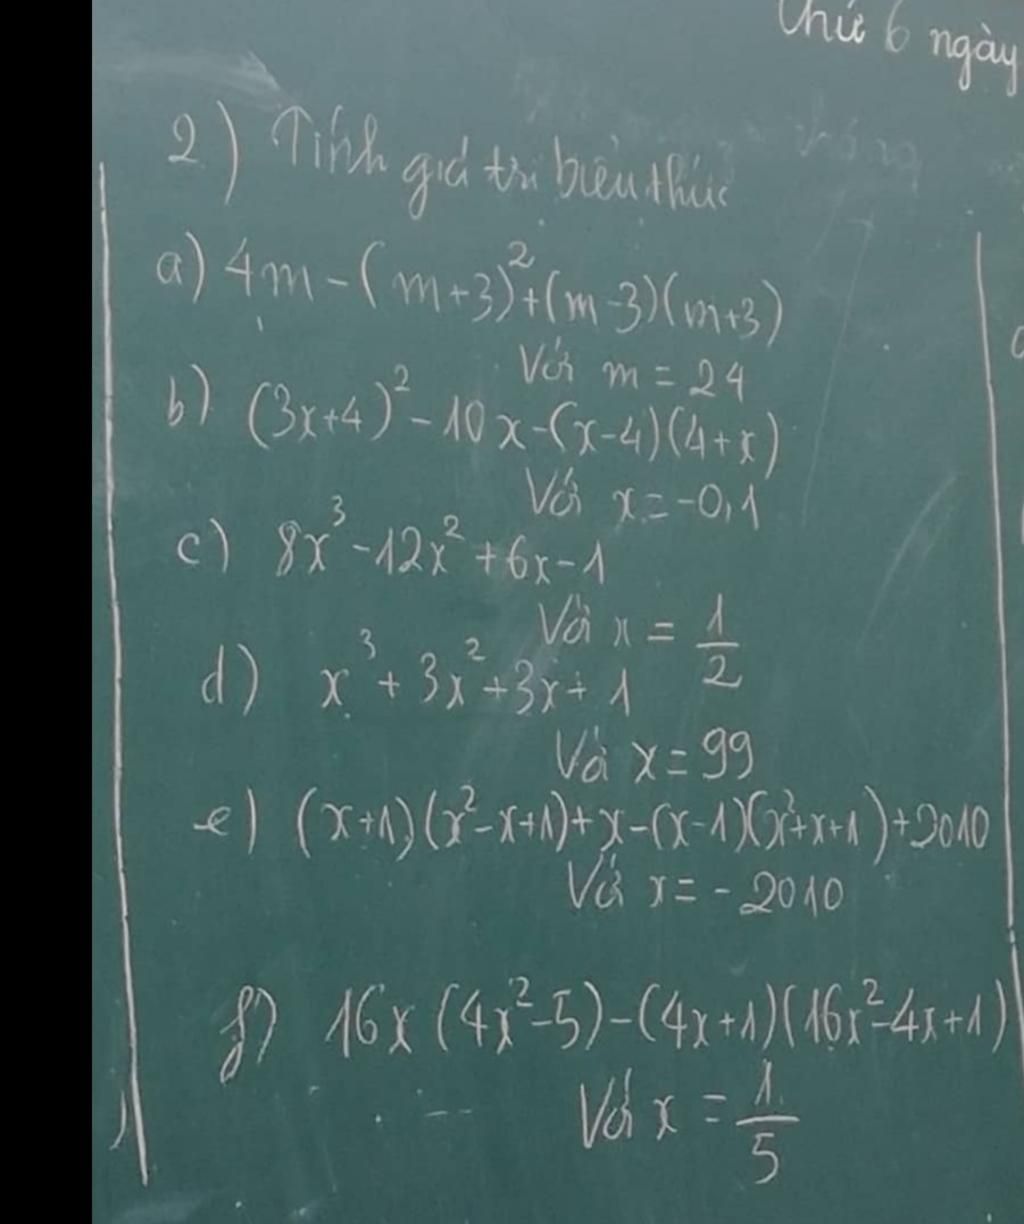 Thứ 6 ngày
2) Tính giá trị biểu thức
a) 4m - (m+3)² + (m-3)(m+3)
Với m = 24
b) (3x+4)² - 10x - (x-4)(4+x)
Với x = -0,1
c) 8x³ - 12x² + 6x - 1
Với x = 1/2
d) x³ + 3x² + 3x + 1
Với x = 99
e) (x+1)(x² - x+1) + x - (x-1)(x²+x+1) + 2010
Với x = - 2010
f) 16x (4x² - 5) - (4x+1)(16x² - 4x+1)
Với x = 1/5